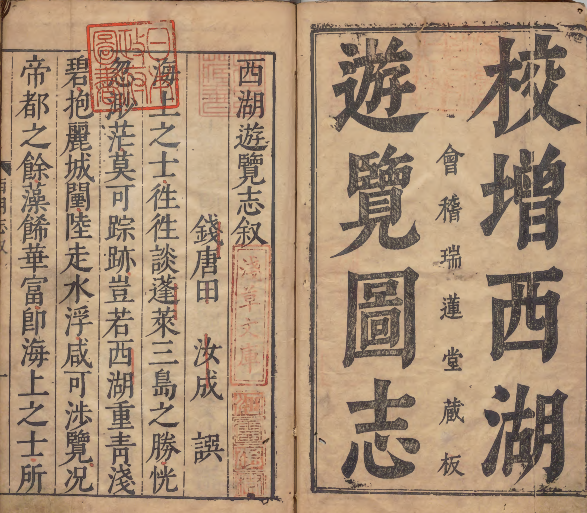 校增西湖
會稽瑞蓮堂藏板
遊覽圖志
西湖遊覽志叙
淺草文庫
錢唐田 汝成 譔
海上之士徃徃談蓬萊三島之勝恍
忽渺茫莫可踪跡豈若西湖重青淺
碧抱麗城闉陸走水浮咸可涉覽况
帝都之餘藻餙華富卽海上之士所